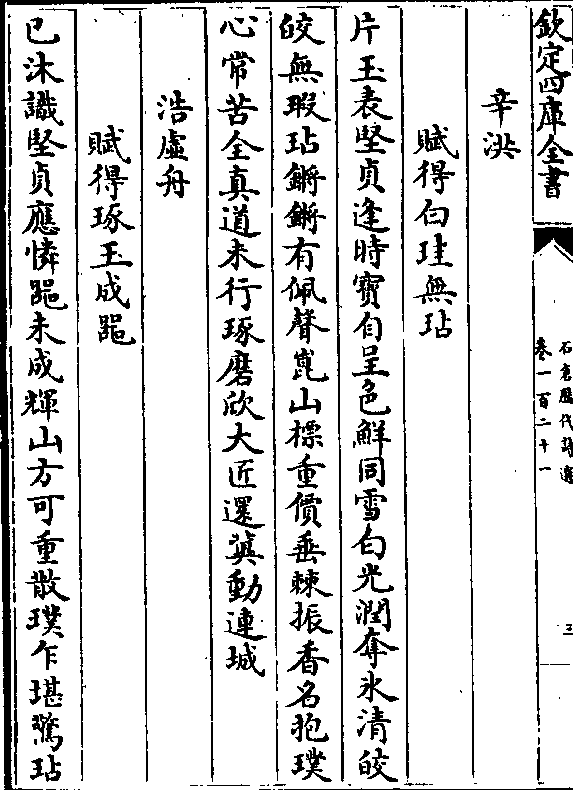 欽定四庫全書
石倉歷代詩選
卷一百二十一
三
辛洪
賦得白珪無玷
片玉表堅貞逢時寶自呈色鮮同雪白光潤奪氷清皎
皎無瑕玷鏘鏘有佩聲崑山摽重價垂棘振香名抱璞
心常苦全真道未行琢磨欣大匠還冀動連城
浩虛舟
賦得琢玉成器
已沐識堅貞應憐器未成輝山方可重散璞乍堪驚玷